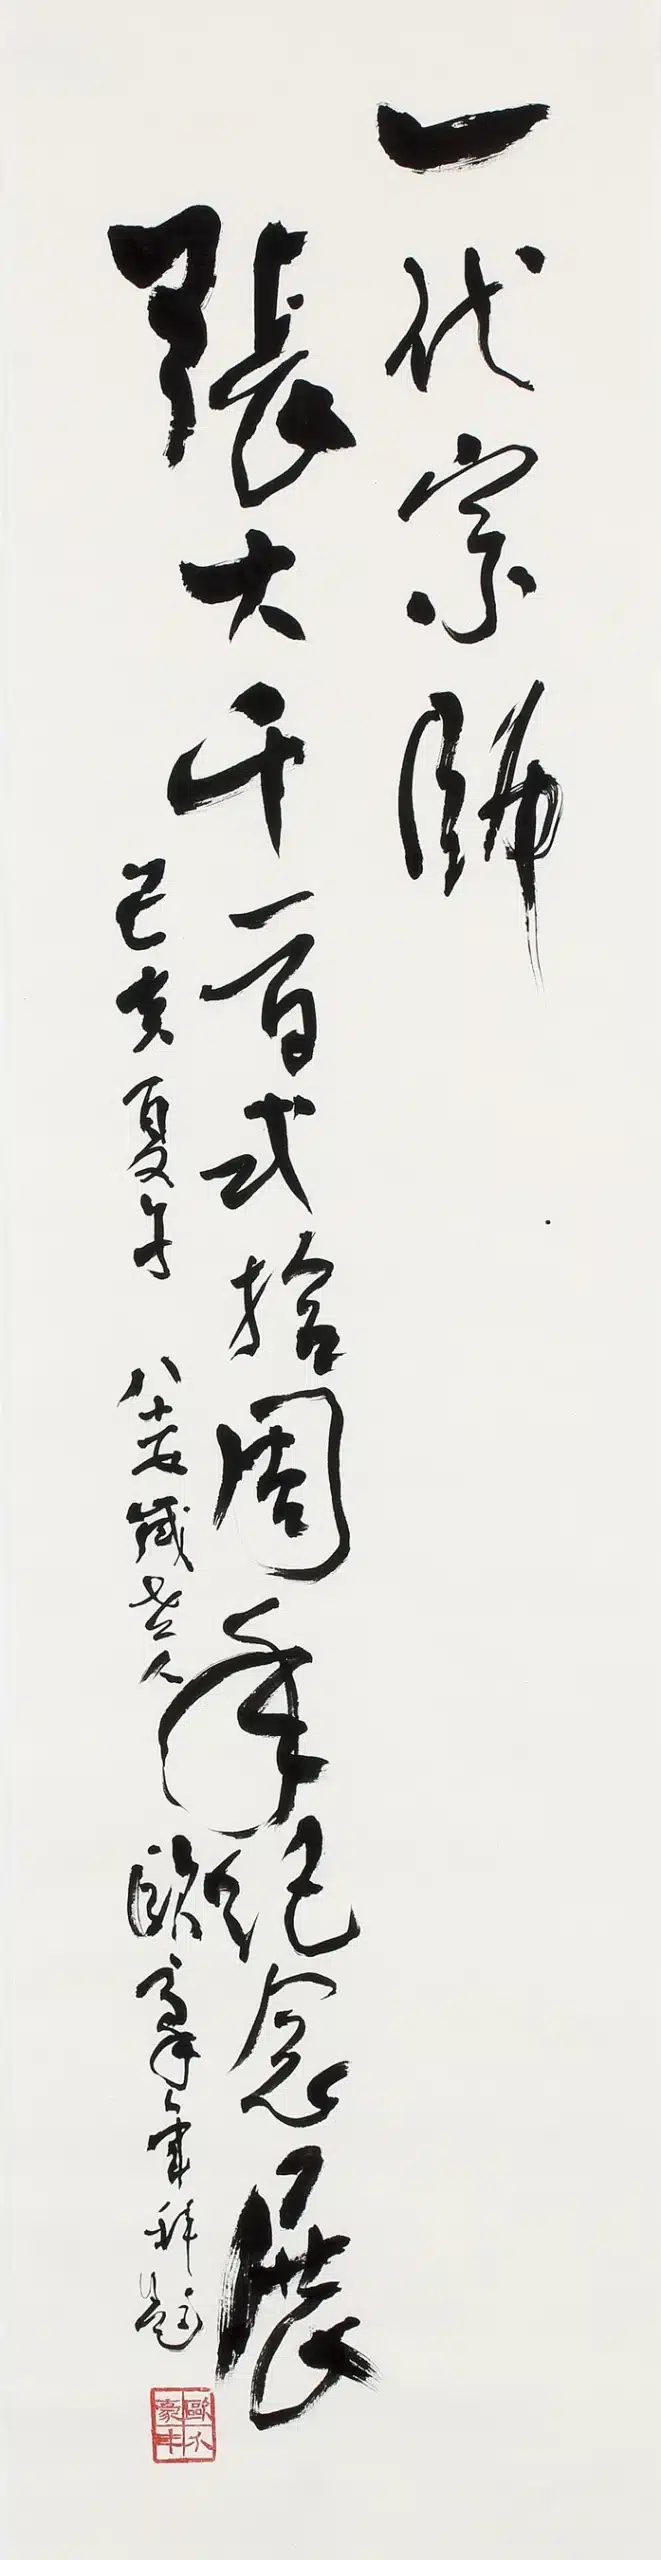 一代宗師
張大千一百弍拾周年紀念展
己亥夏 八十五歲老人 歐豪年拜題
歐
豪年